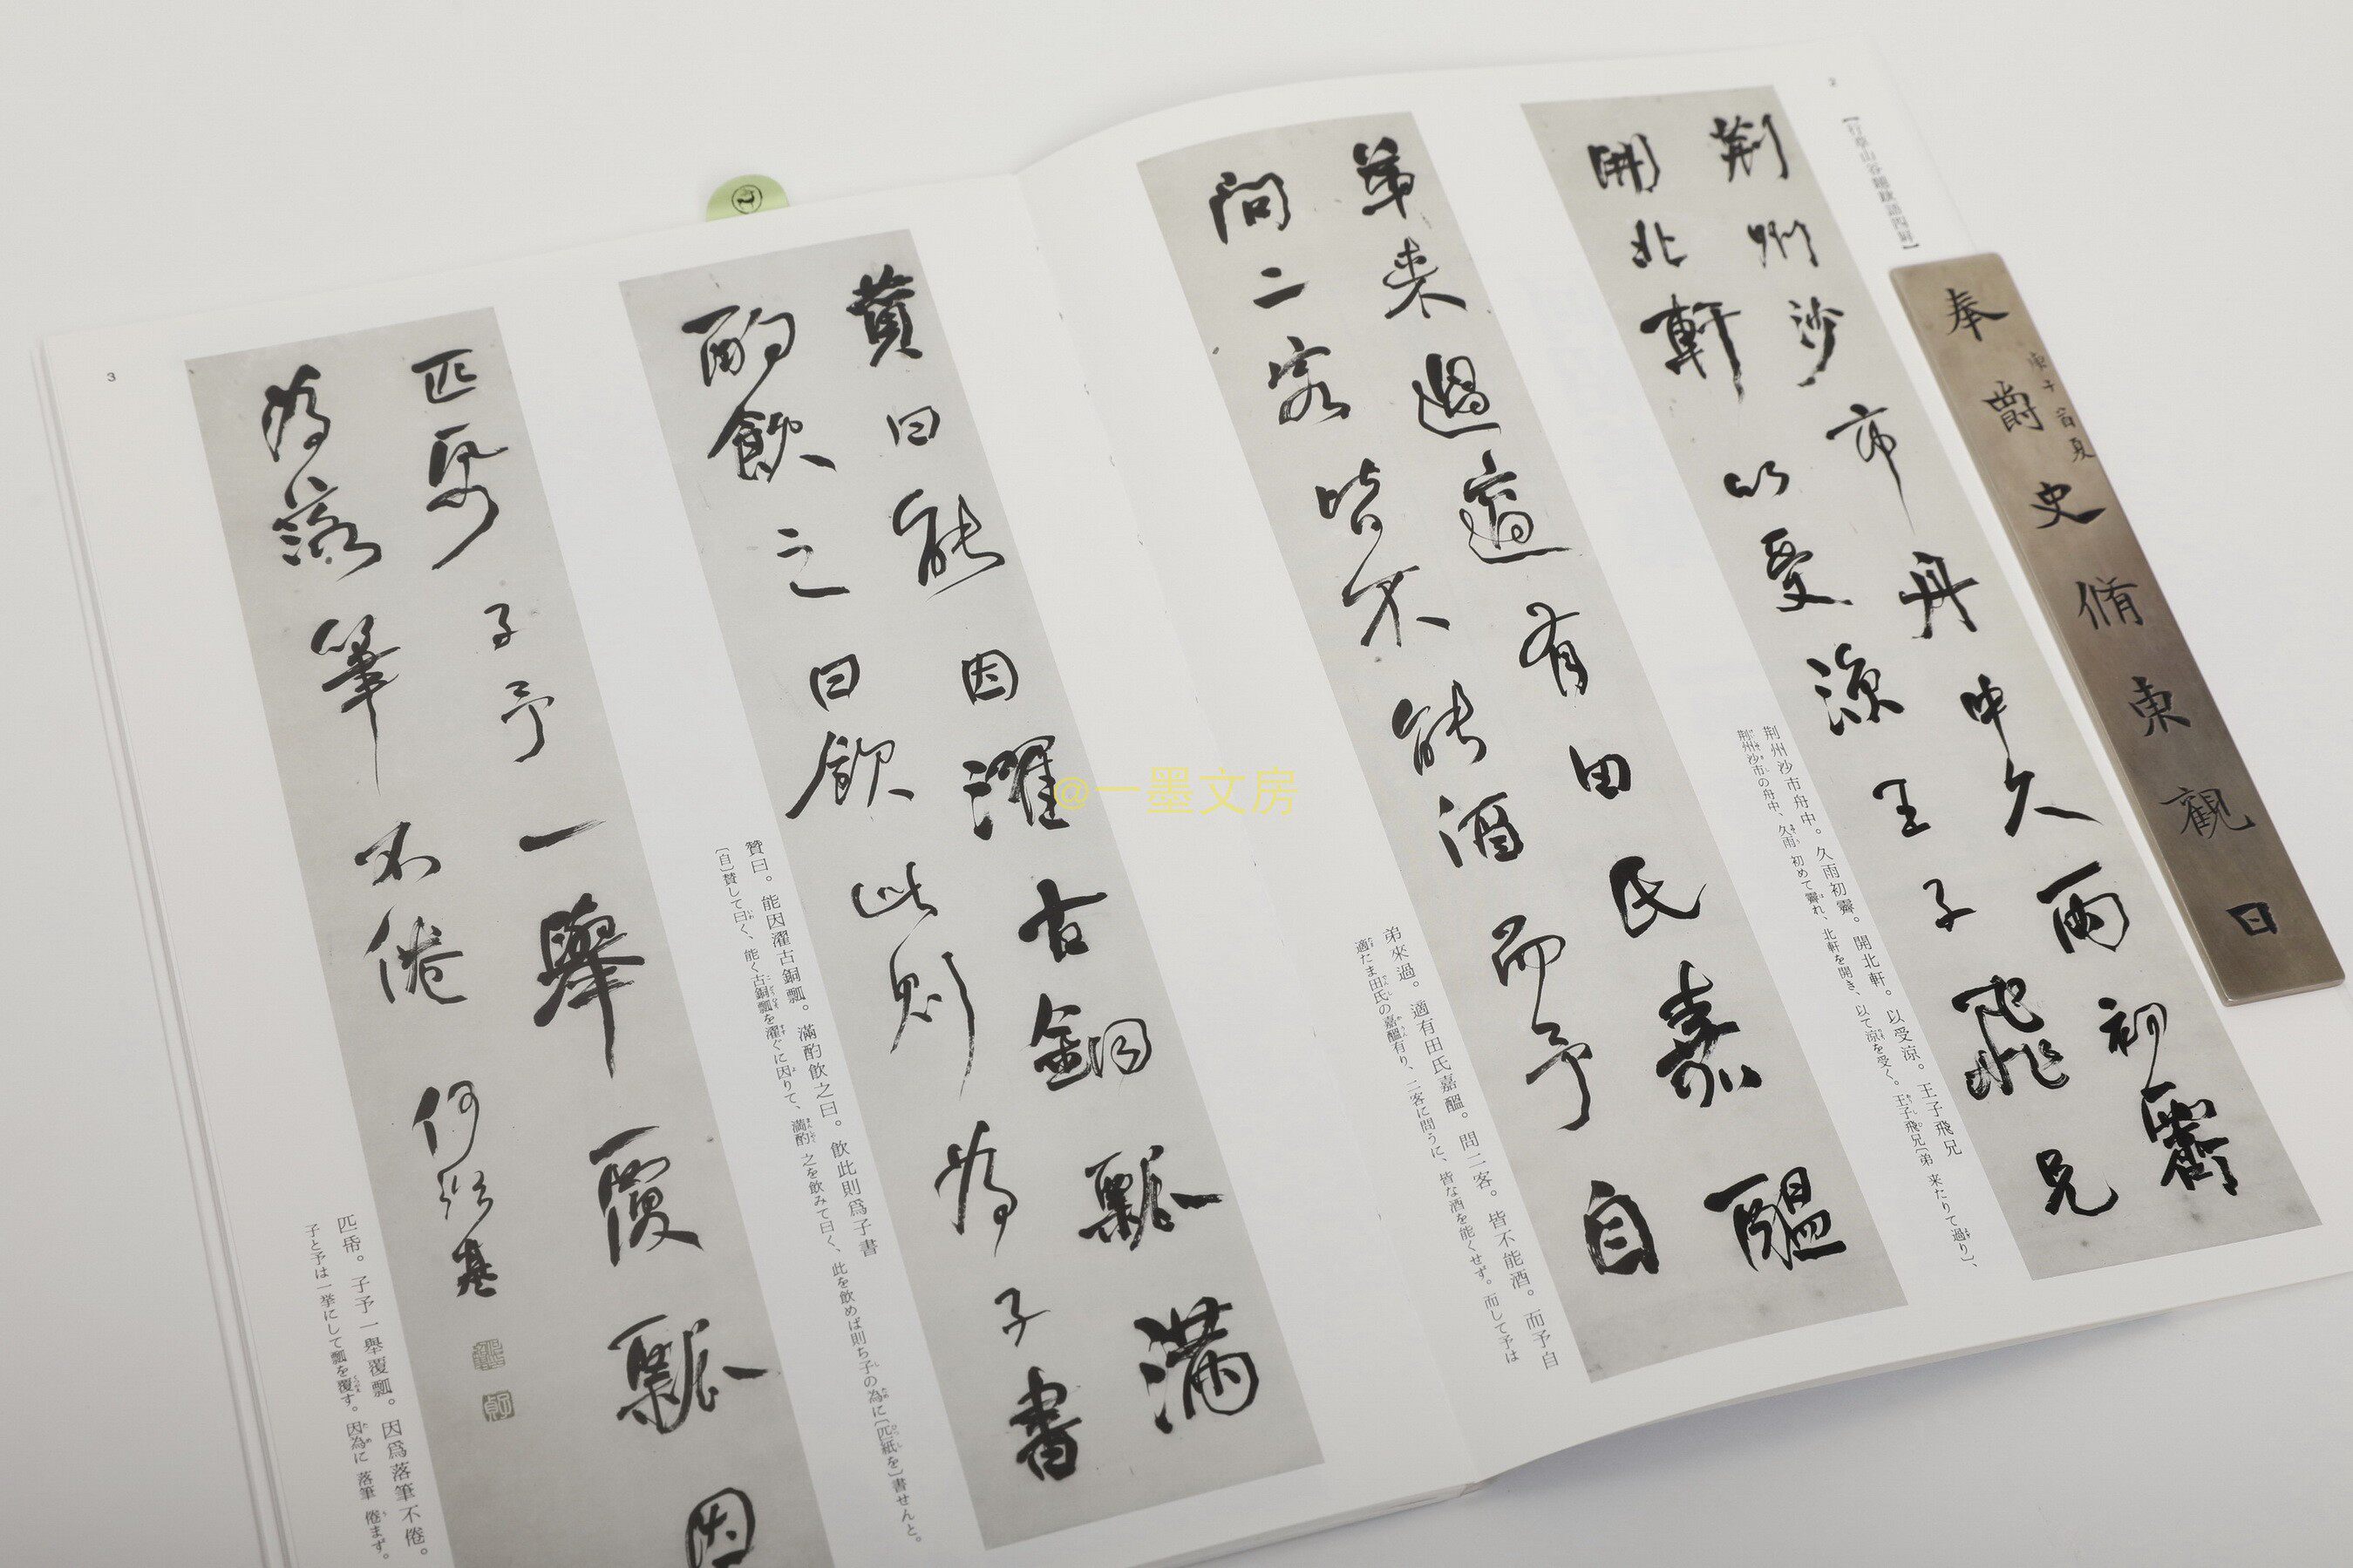 2
【行草山谷題跋語四屏】
荊州沙市舟中久雨初霽
開北軒以受涼王子飛兄
荆州沙市舟中。久雨初霽。開北軒。以受涼。王子飛兄
荆州沙市の舟中、久雨 初めて霽れ、北軒を開き、以て涼を受く。王子飛兄〔弟 来たりて過り〕、
弟来過適有田氏嘉醞
問二客皆不能酒而予自
弟來過。適有田氏嘉醞。問二客。皆不能酒。而予自
適たま田氏の嘉醞有り、二客に問うに、皆な酒を能くせず。而して予は
賛曰能因濯古銅瓢滿
酌飲之曰飲此則為子書
贊曰。能因濯古銅瓢。滿酌飲之曰。飲此則爲子書
〔自〕賛して曰く、能く古銅瓢を濯ぐに因りて、満酌 之を飲みて曰く、此を飲めば則ち子の為に〔匹紙を〕書せんと。
匹帋子予一舉覆瓢因
為落筆不倦 何紹基
匹帋。子予一舉覆瓢。因爲落筆不倦。
子と予は一挙にして瓢を覆す。因為に 落筆 倦まず。
3
奉爵史脩東觀日
@一墨文房